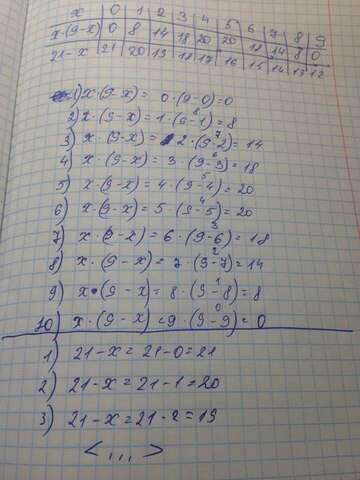 x 0 1 2 3 4 5 6 7 8 9
x·(9-x) 0 8 14 18 20 20 18 14 8 0
21-x 21 20 19 18 17 16 15 14 13 12
1) x·(9-x) = 0·(9-0)=0
2) x·(9-x) = 1·(9-1)=8
8
3) x·(9-x) = 2·(9-2)=14
7
4) x·(9-x) = 3·(9-3)=18
6
5) x·(9-x) = 4·(9-4)=20
5
6) x·(9-x) = 5·(9-5)=20
4
7) x·(9-x) = 6·(9-6)=18
3
8) x·(9-x) = 7·(9-7)=14
2
9) x·(9-x) = 8·(9-8)=8
1
10) x·(9-x) = 9·(9-9)=0
0
1) 21-x=21-0=21
2) 21-x=21-1=20
3) 21-x=21-2=19
<...>